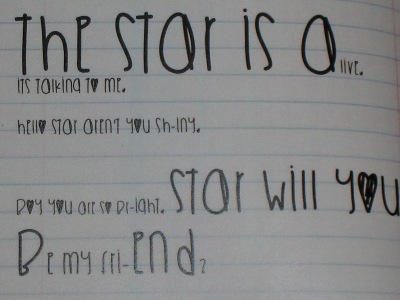 the star is alive.
its talking to me.
hello star aren't you sh-iny.
Boy you are so br-ight. star will you
Be my fri-end?